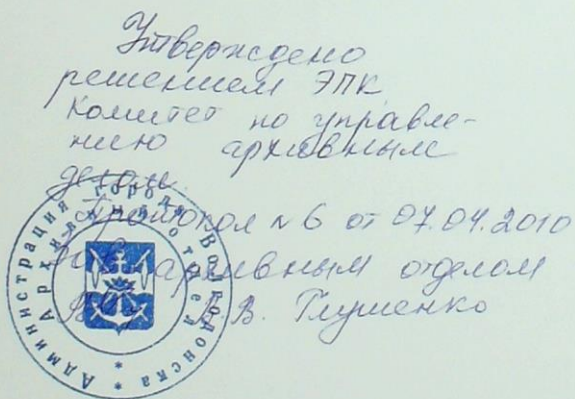 Утверждено
решением ЭПК
Комитет по управле-
нию архивным
делом.
Протокол № 6 от 07.04.2010
Зав. архивным отделом
В.В. Глушенко
Администрация города Волгодонска
Архивный отдел